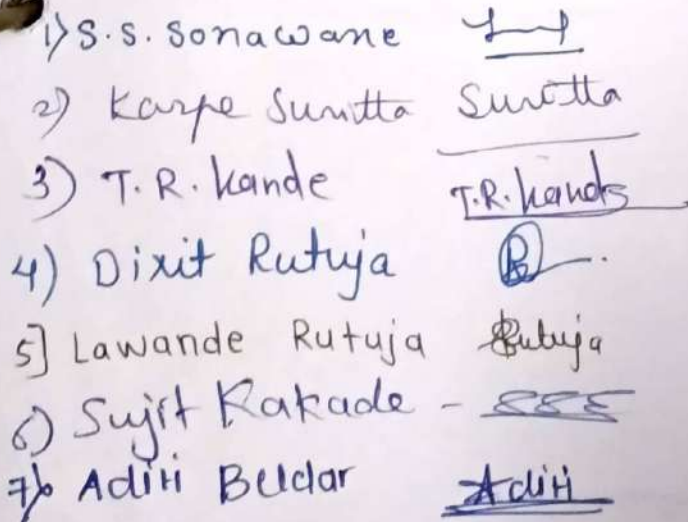 1) S.S. Sonawane
2) Karpe Sunitta Sunitta
3) T.R. Kande T.R. Kande
4) Dixit Rutuja
5] Lawande Rutuja Rutuja
6) Sujit Kakade -
7) Aditi Beldar Aditi